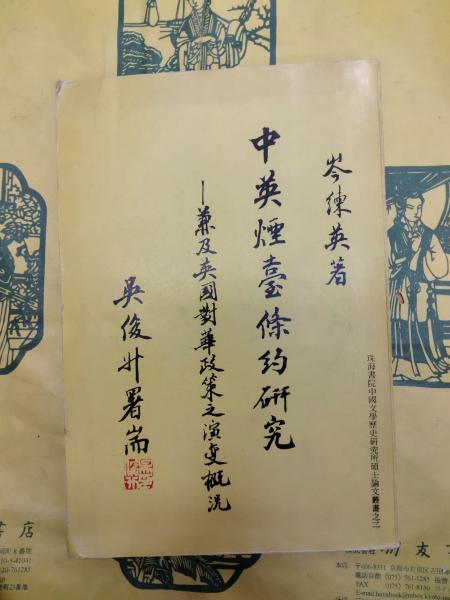 岑練英著
中英煙臺條約研究
—兼及英國對華政策之演變概況
吳俊升署耑
珠海書院中國文學歷史研究所碩士論文叢書之二
書店
朋友
本店
〒606-8311
京都
電話京都 (075) 761-1285
FAX (075) 761-8150
E-mail